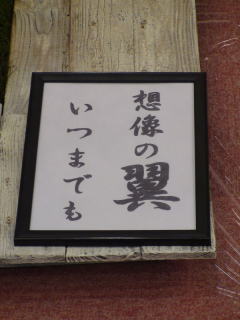 想像の翼
いつまでも